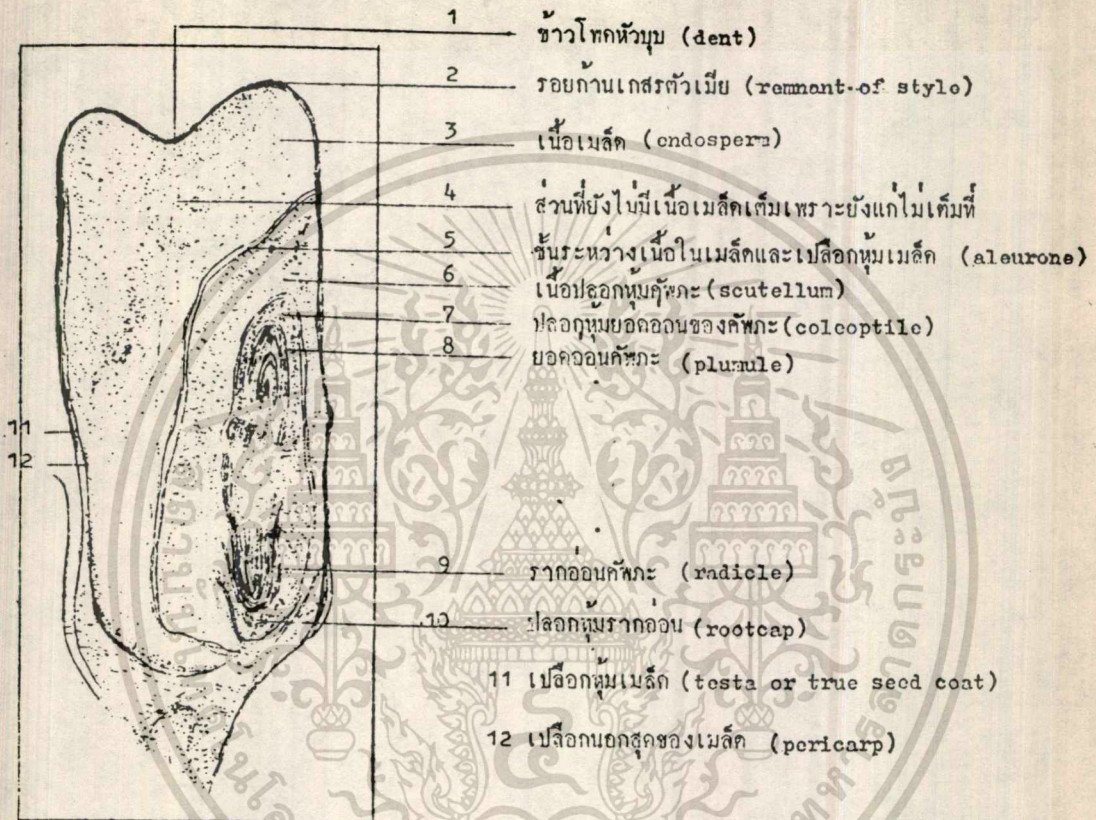 1 ข้าวโพดหัวบุบ (dent)
2 รอยก้านเกสรตัวเมีย (remnant of style)
3 เนื้อเมล็ด (endosperm)
4 ส่วนที่ยังไม่มีเนื้อเมล็ดเต็มเพราะยังแก่ไม่เต็มที่
5 ชั้นระหว่างเนื้อในเมล็ดและเปลือกหุ้มเมล็ด (aleurone)
6 เนื้อปลอกหุ้มคัพภะ (scutellum)
7 ปลอกหุ้มยอดออนของคัพภะ (coleoptile)
8 ยอดออนคัพภะ (plumule)
11
12
9 รากอ่อนคัพภะ (radicle)
10 ปลอกหุ้มรากอ่อน (rootcap)
11 เปลือกหุ้มเมล็ด (testa or true seed coat)
12 เปลือกนอกสุดของเมล็ด (pericarp)